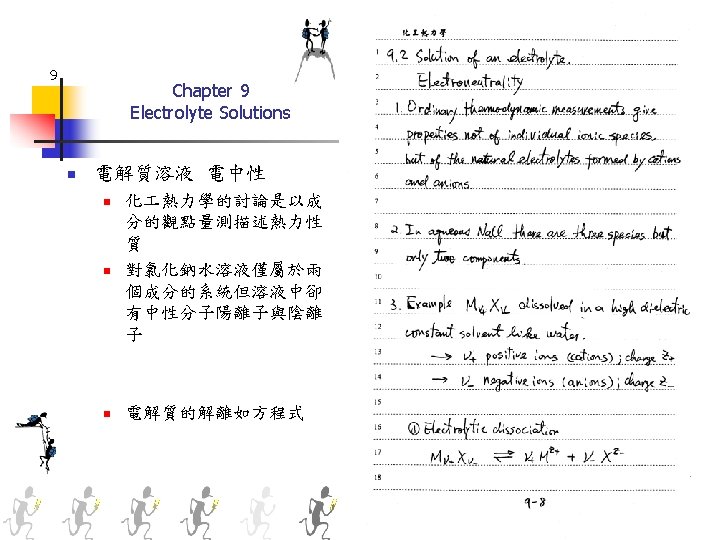 9
Chapter 9
Electrolyte Solutions
電解質溶液 電中性
化工熱力學的討論是以成
分的觀點量測描述熱力性
質
對氯化鈉水溶液僅屬於兩
個成分的系統但溶液中卻
有中性分子陽離子與陰離
子
電解質的解離如方程式
化工熱力學
1 9.2 Solution of an electrolyte.
2 Electroneutrality
3 1. Ordinary thermodynamic measurements give
4 properties not of individual ionic species,
5 but of the natural electrolytes formed by cations
6 and anions.
7
8 2. In aqueous NaCl there are three species but
9 only two components.
10
11 3. Example Mν+ Xν- dissolved in a high dielectric
12 constant solvent like water.
13 → ν+ positive ions (cations); charge Z+
14 → ν- negative ions (anions); charge Z-
15
16 ① Electrolytic dissociation
17 Mν+ Xν- ⇌ ν+ M^Z+ + ν- X^Z-
18
9-8